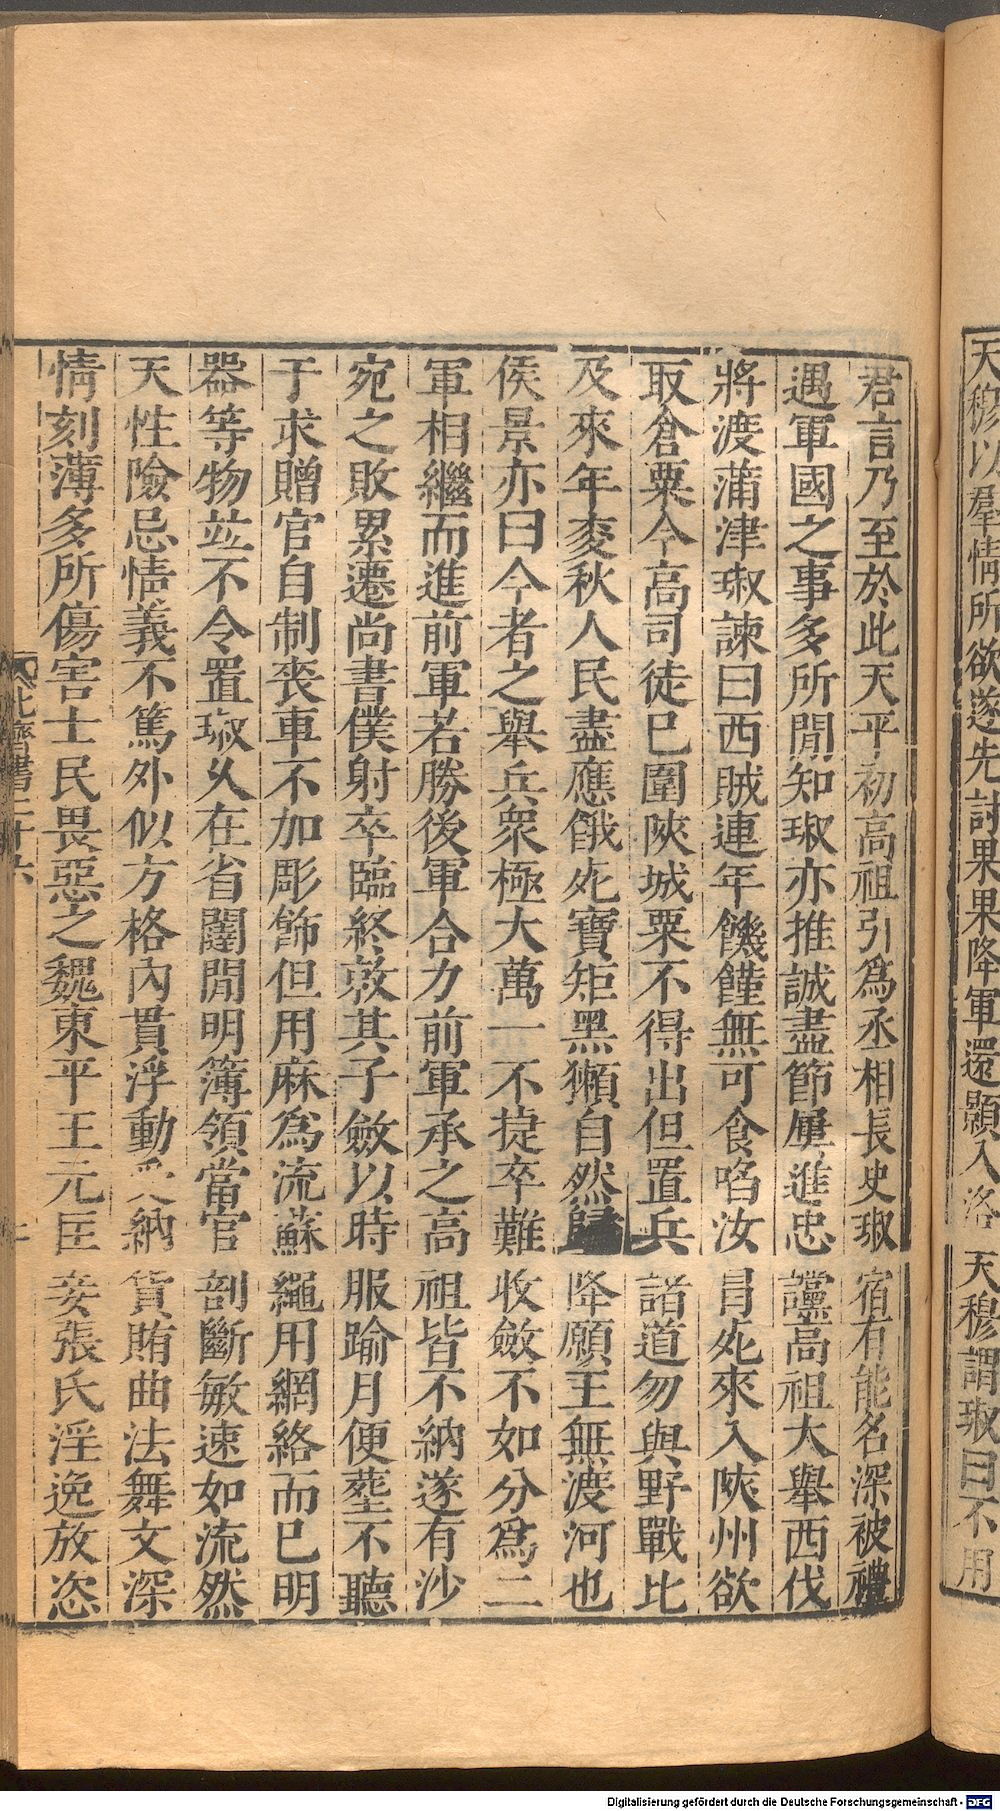 天穆以羣情所欲遂先討杲杲降軍還顥入洛天穆謂琡曰不用
君言乃至於此天平初高祖引爲丞相長史琡宿有能名深被禮
遇軍國之事多所聞知琡亦推誠盡節屢進忠讜高祖大舉西伐
將渡蒲津琡諫曰西賊連年饑饉無可食啗汝冒死來入陝州欲
取倉粟今高司徒巳圍陝城粟不得出但置兵諸道勿與野戰比
及來年麥秋人民盡應餓死寶炬黑獺自然歸降願王無渡河也
侯景亦曰今者之舉兵衆極大萬一不捷卒難收斂不如分爲二
軍相繼而進前軍若勝後軍合力前軍承之高祖皆不納遂有沙
宛之敗累遷尚書僕射卒臨終敕其子斂以時服踰月便塟不聽
于求贈官自制喪車不加彫飾但用麻爲流蘇繩用網絡而巳明
器等物並不令置琡乆在省闥閒明簿領當官剖斷敏速如流然
天性險忌情義不篤外似方格內實浮動受納貨賄曲法舞文深
情刻薄多所傷害士民畏惡之魏東平王元匡妾張氏淫逸放恣
北齊書二十六